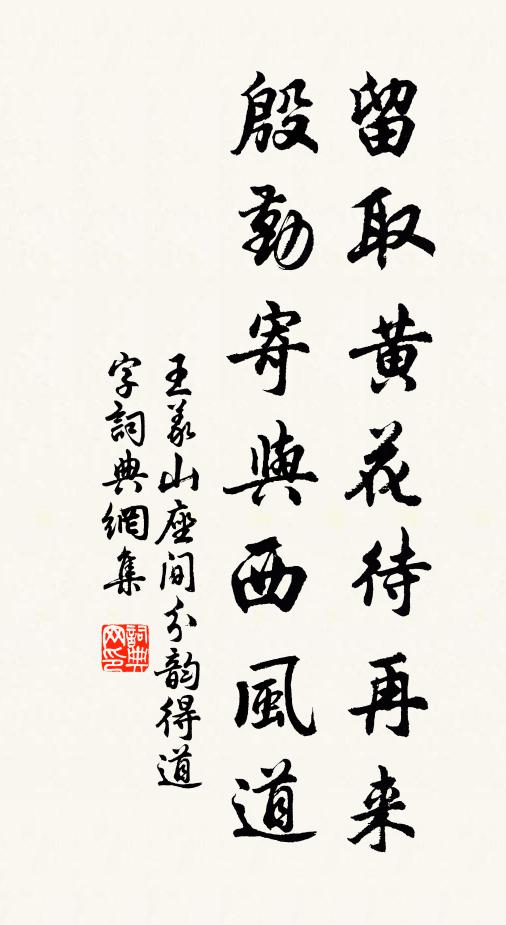 留取黄花待再来
殷勤寄與西風道
王義山座间分韵得道
字詞典網集
詞典
网印